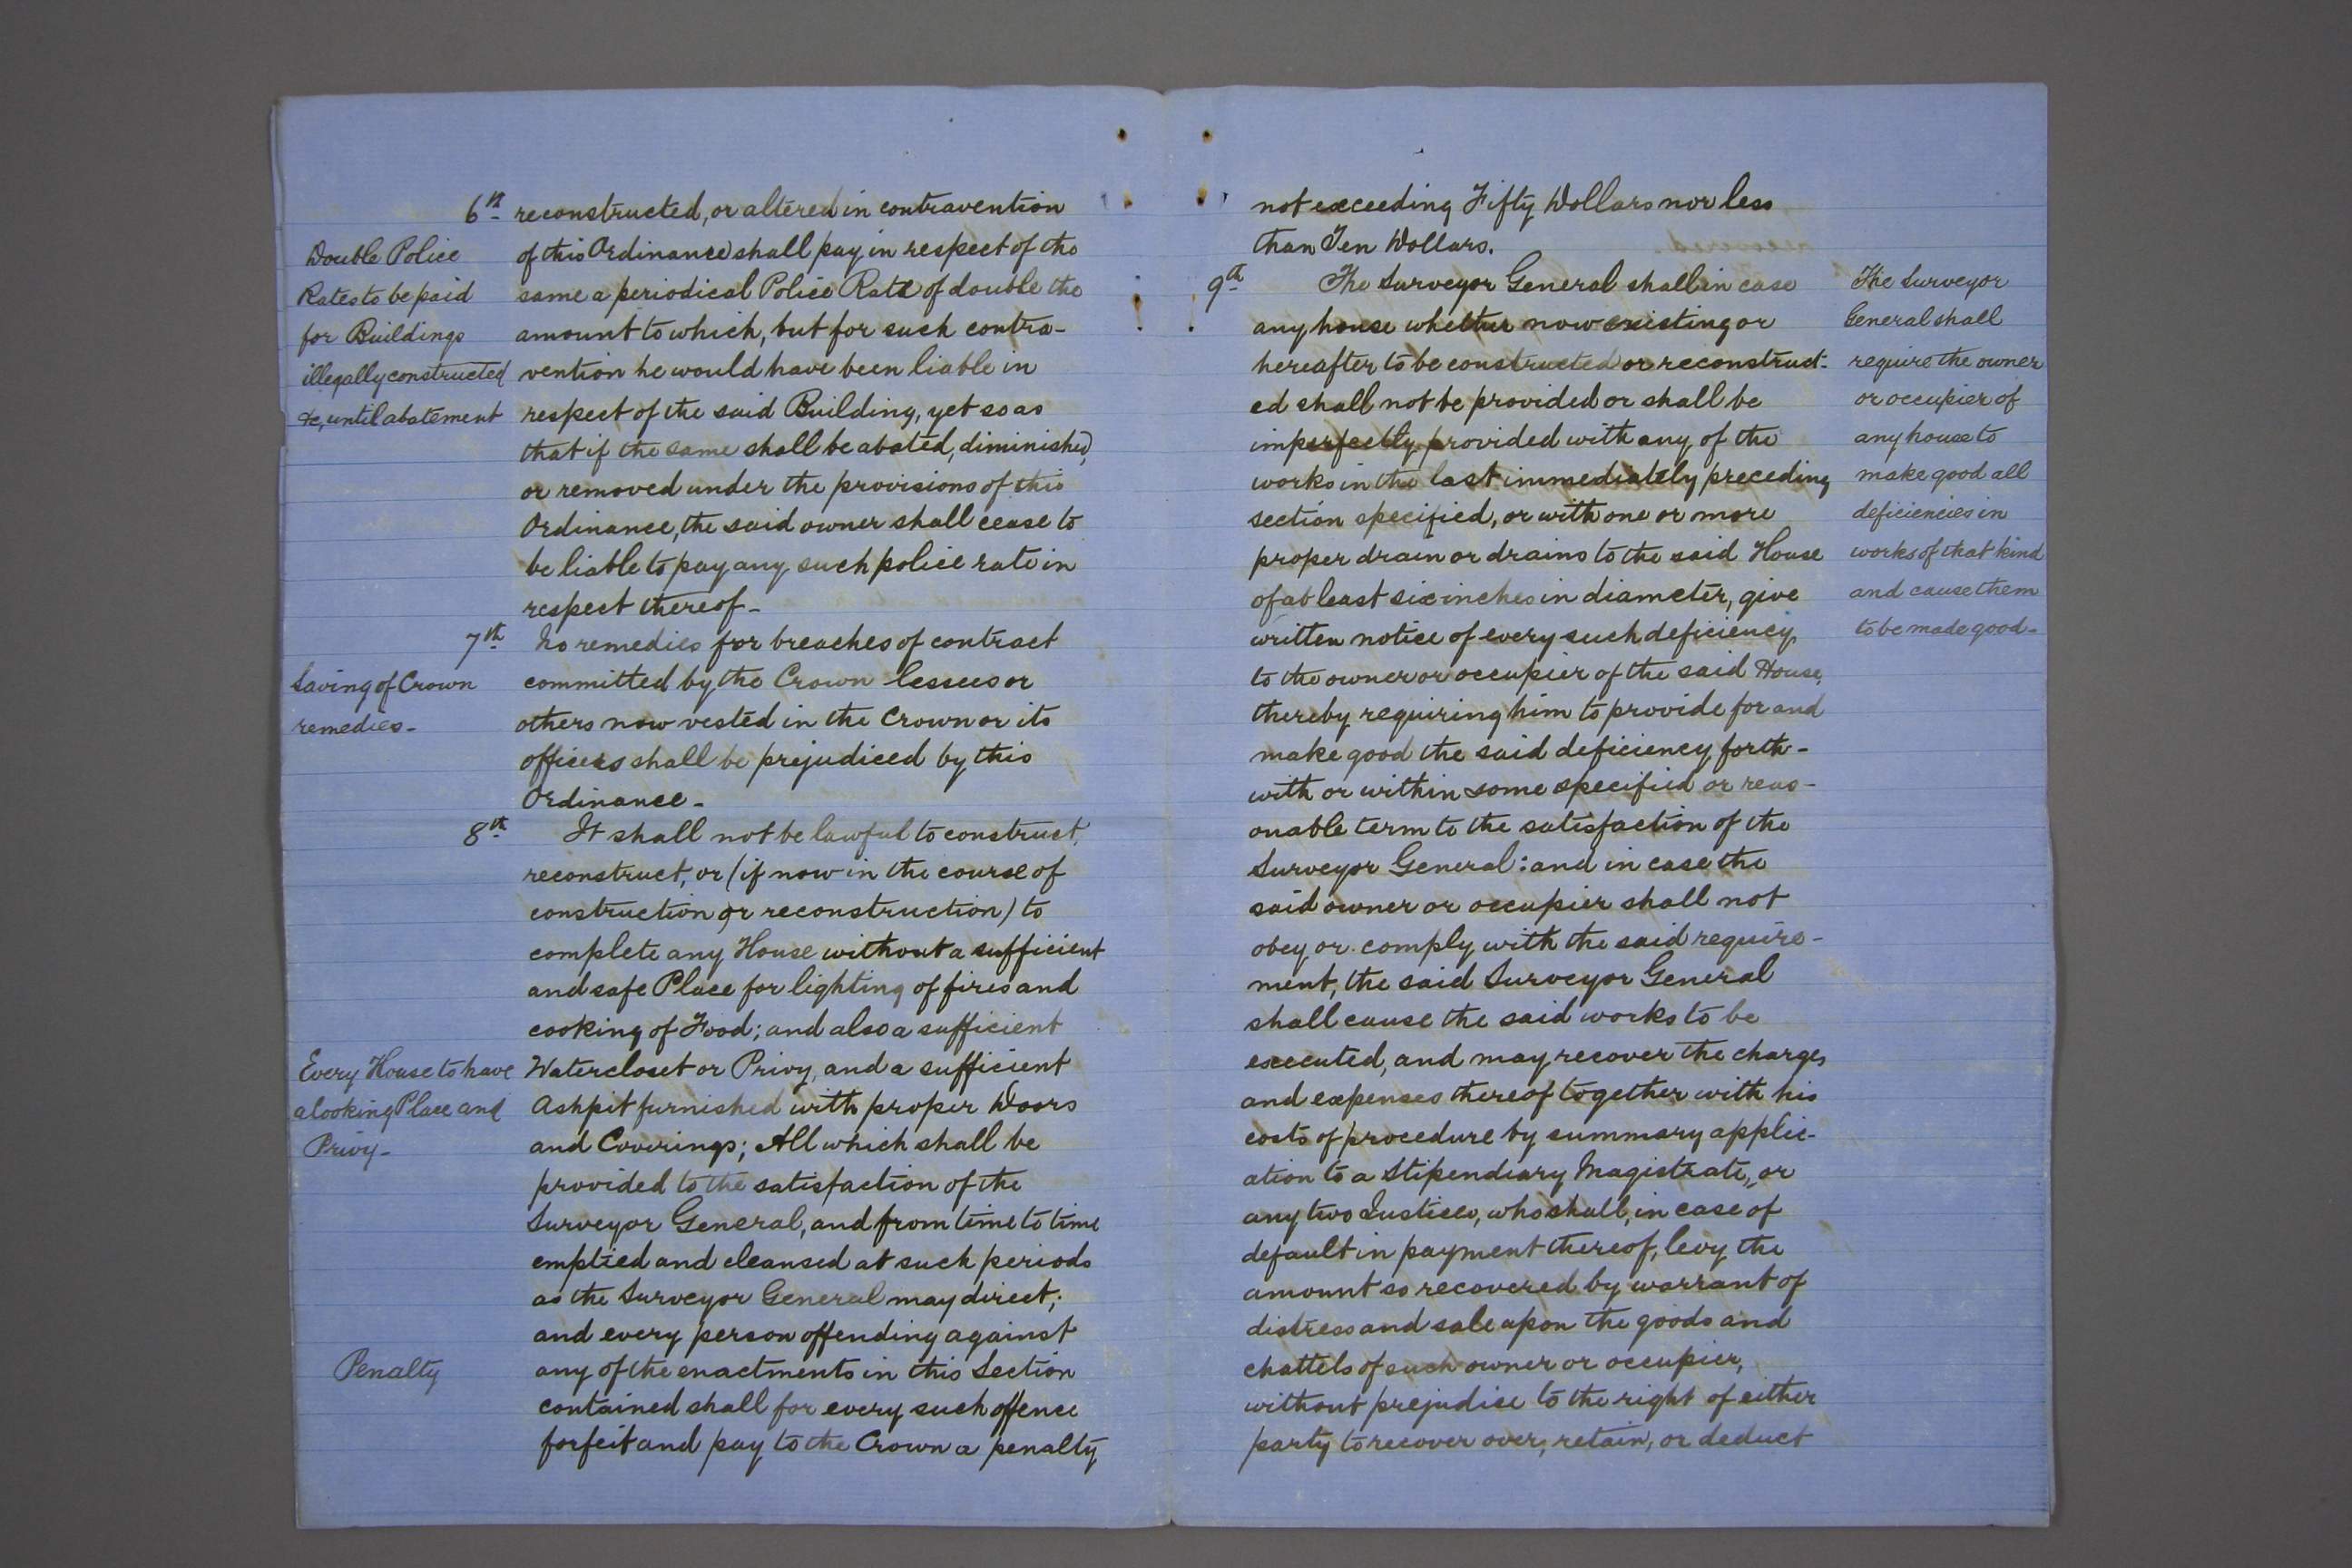 6th reconstructed, or altered in contravention
Double Police of this Ordinance shall pay in respect of the
Rates to be paid same a periodical Police Rate of double the
for Buildings amount to which, but for such contra-
illegally constructed vention he would have been liable in
&c, until abatement respect of the said Building, yet so as
that if the same shall be abated, diminished,
or removed under the provisions of this
Ordinance, the said owner shall cease to
be liable to pay any such police rate in
respect thereof-
7th No remedies for breaches of contract
Saving of Crown committed by the Crown lessees or
remedies- others now vested in the Crown or its
officers shall be prejudiced by this
Ordinance-
8th It shall not be lawful to construct,
reconstruct, or (if now in the course of
construction or reconstruction) to
complete any House without a sufficient
and safe Place for lighting of fires and
cooking of Food; and also a sufficient
Every House to have Watercloset or Privy, and a sufficient
a Cooking Place and Ashpit furnished with proper Doors
Privy- and Coverings; All which shall be
provided to the satisfaction of the
Surveyor General, and from time to time
emptied and cleansed at such periods
as the Surveyor General may direct;
and every person offending against
Penalty any of the enactments in this Section
contained shall for every such offence
forfeit and pay to the Crown a penalty
not exceeding Fifty Dollars nor less
than Ten Dollars.
9th The Surveyor General shall in case
any house whether now existing or
hereafter to be constructed or reconstruct-
ed shall not be provided or shall be
imperfectly provided with any of the
works in the last immediately preceding
section specified, or with one or more
proper drain or drains to the said House
of at least six inches in diameter, give
written notice of every such deficiency
to the owner or occupier of the said House,
thereby requiring him to provide for and
make good the said deficiency forth-
with or within some specified or reas-
onable term to the satisfaction of the
Surveyor General: and in case the
said owner or occupier shall not
obey or comply with the said require-
ment, the said Surveyor General
shall cause the said works to be
executed, and may recover the charges
and expenses thereof together with his
costs of procedure by summary applic-
ation to a Stipendiary Magistrate, or
any two Justices, who shall, in case of
default in payment thereof, levy the
amount so recovered by warrant of
distress and sale upon the goods and
chattels of such owner or occupier,
without prejudice to the right of either
party to recover over, retain, or deduct
The Surveyor
General shall
require the owner
or occupier of
any house to
make good all
deficiencies in
works of that kind
and cause them
to be made good-